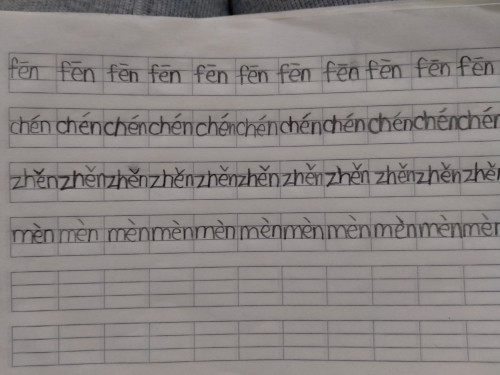 fēn fēn fēn fēn fēn fēn fēn fēn fēn fēn fēn
chén chén chén chén chén chén chén chén chén chén chén
zhěn zhěn zhěn zhěn zhěn zhěn zhěn zhěn zhěn zhěn zhěn
mèn mèn mèn mèn mèn mèn mèn mèn mèn mèn mèn